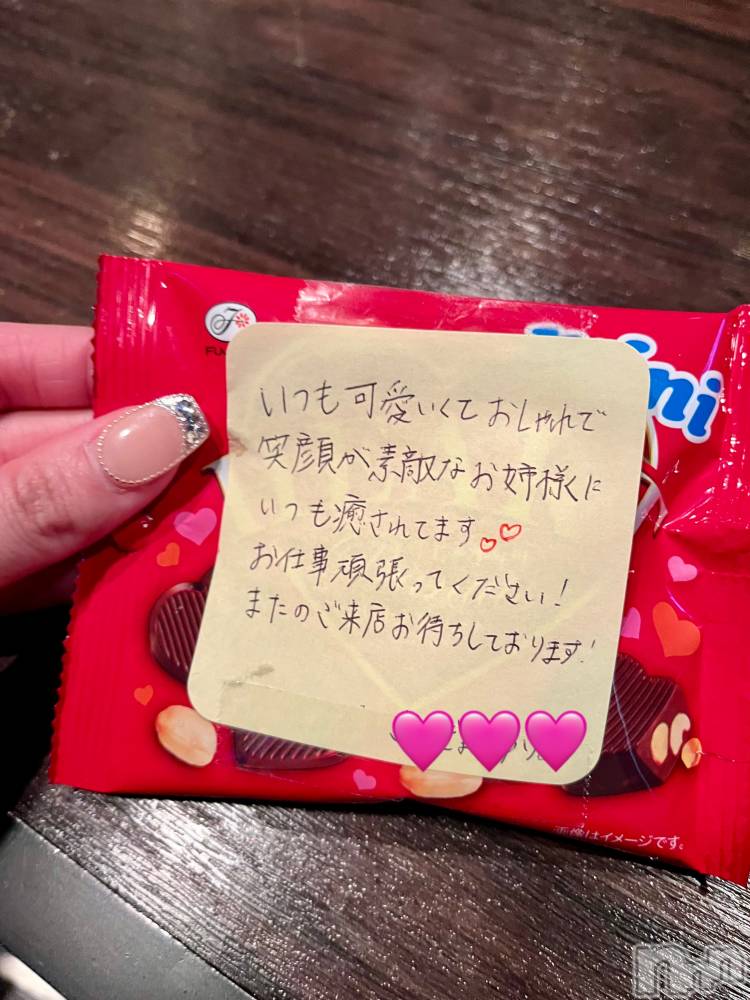 mini
いつも可愛いくておしゃれで
笑顔が素敵なお姉様に
いつも癒されてます
お仕事頑張ってください!
またのご来店お待ちしております!
画像はイメージです。